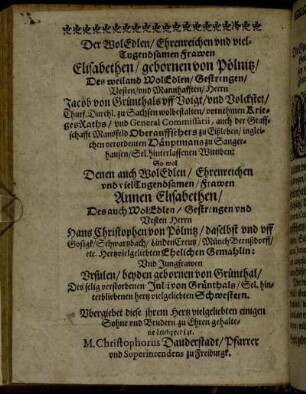 Der WolEdlen/ Ehrenreichen vnd viel-
Tugendsamen Frawen
Elisabethen/ gebornen von Pölnitz/
Des weiland WolEdlen/ Gestrengen/
Vesten/ vnd Mannhafften/ Herrn
Jacob von Grünthals vff Voigt/ vnd Volckstet/
Churf. Durchl. zu Sachsen wolbestalten/ vornehmen Krie-
gesRaths/ vnd General Commissarii, auch der Graff-
schafft Mansfeld Oberauffsehers zu Eißleben/ inglei-
chen verordenten Häuptmans zu Sanger-
hausen/ Sel. hinterlassenen Wittiben:
So wol
Denen auch WolEdlen/ Ehrenreichen
vnd vielTugendsamen/ Frawen
Annen Elisabethen/
Des auch WolEdlen/ Gestrengen vnd
Vesten Herrn
Hans Christophen von Pölnitz/ daselbst vnd vff
Goseck/ Schwartzbach/ LindenCreutz/ MünchBernsdorff/
etc. Hertzvielgeliebten Ehelichen Gemahlin:
Vnd Jungfrawen
Vrsulen/ beyden gebornen von Grünthal/
Des selig verstorbenen Julii von Grünthals/ Sel. hin-
terbliebenen hertz vielgeliebten Schwestern.
Vbergiebet diese ihrem Hertz vielgeliebten einigen
Sohne vnd Brudern zu Ehren gehalte-
ne Leichpredigt.
M. Christophorus Dauderstadt/ Pfarrer
vnd Superintendens zu Freiburgk.